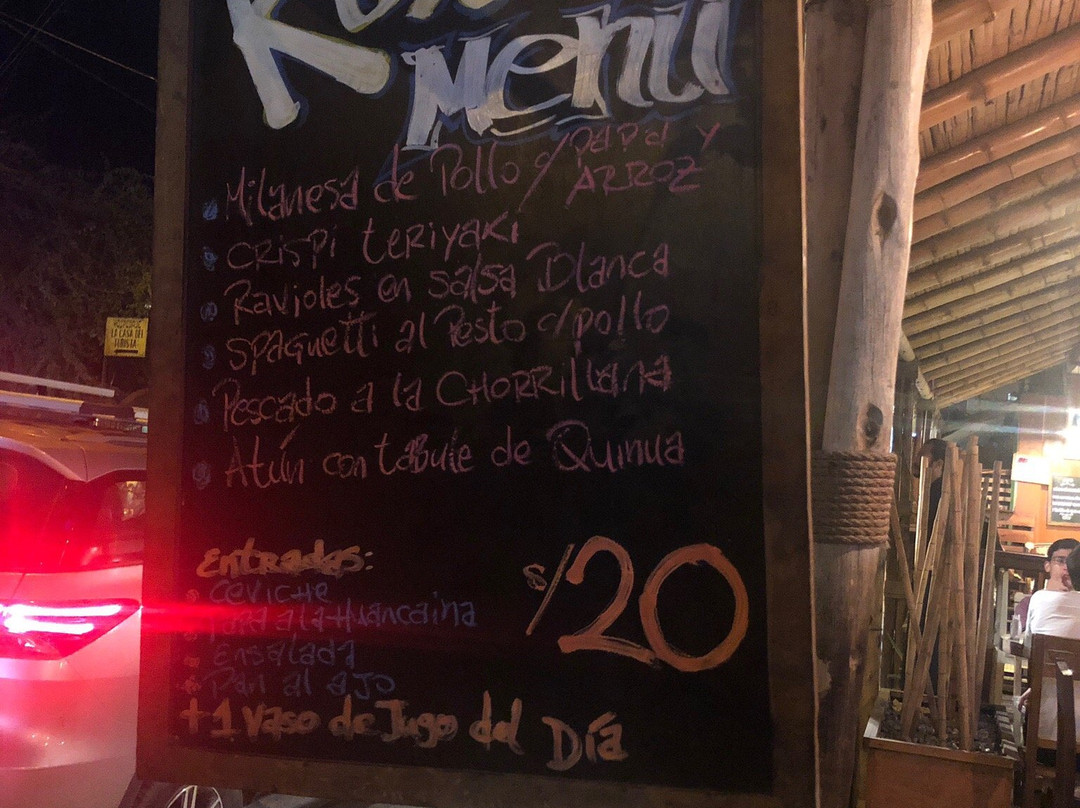 Menú
Milanesa de Pollo c/papa y
ARROZ
CRISPI teriyaki
Ravioles en salsa Blanca
Spaguetti al Pesto c/pollo
Pescado a la CHORRILLANA
Atún con tabule de Quinua
Entradas:
CEVICHE
a la Huancaina
Ensalada
Pan al ajo
+1 vaso de Jugo del Día
S/20
LA CASA DEL